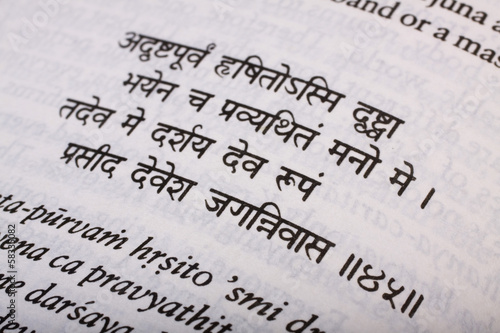 juna a
band or a mas
अदृष्टपूर्वं हृषितोऽस्मि दृष्ट्वा
भयेन च प्रव्यथितं मनो मे ।
तदेव मे दर्शय देव रूपं
प्रसीद देवेश जगन्निवास ॥४५॥
ta-pūrvaṁ hṛṣito 'smi d
ena ca pravyathit
darśaya